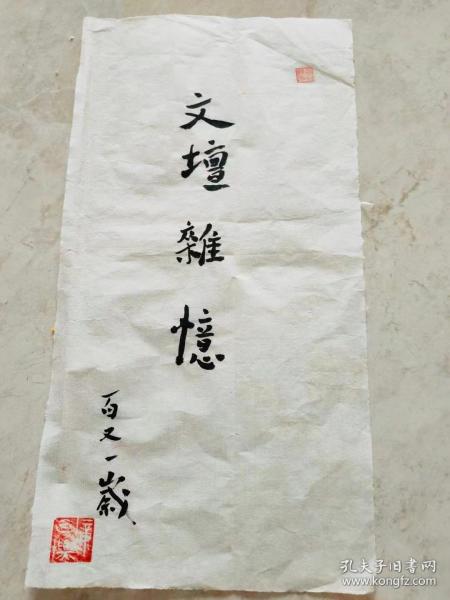 文壇雜憶
百又一歲
孔夫子旧书网
www.kongfz.com